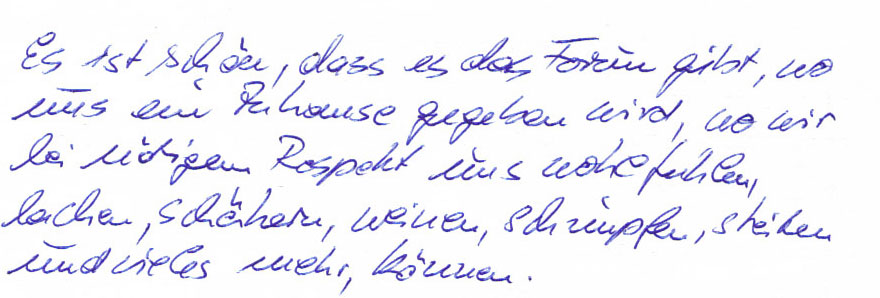 Es ist schön, dass es das Forum gibt, wo
uns ein Zuhause gegeben wird, wo wir
bei nötigem Respekt uns wohlfühlen,
lachen, schäkern, weinen, schimpfen, streiten
und vieles mehr, können.